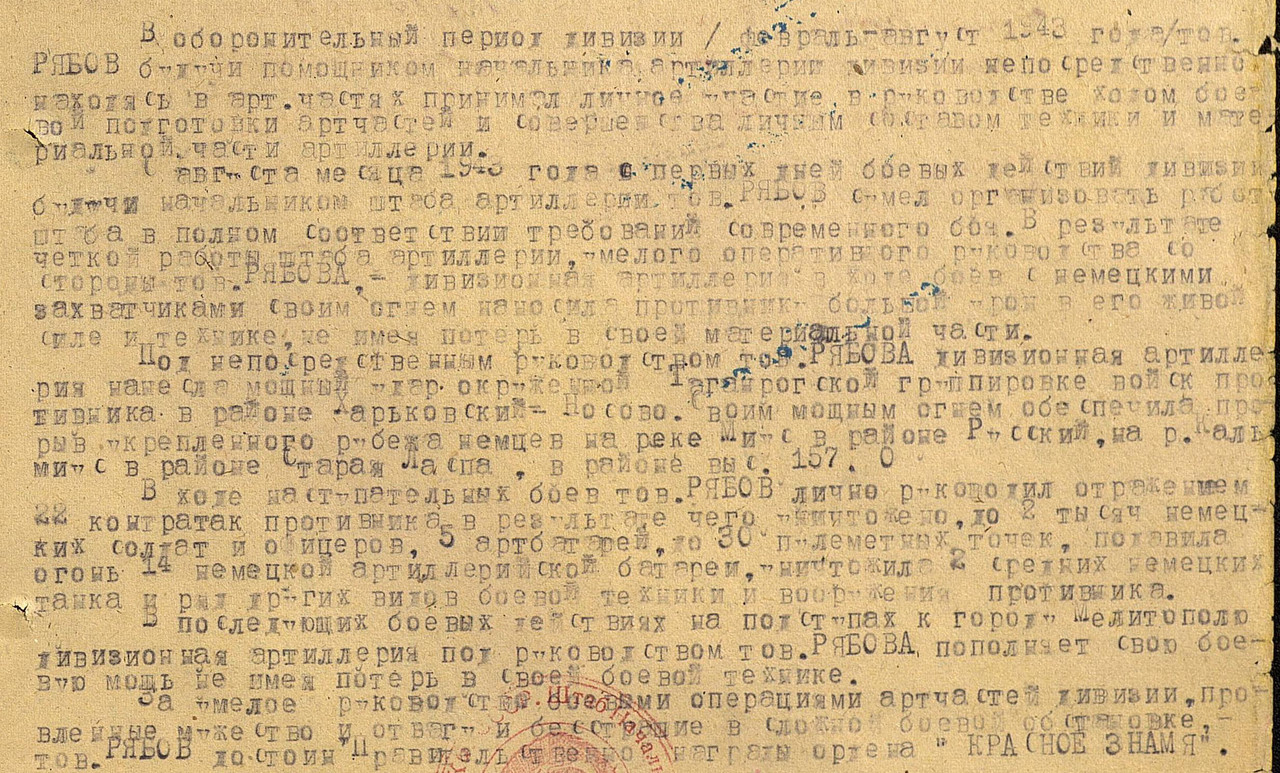 В оборонительный период дивизии / февраль-август 1943 года/тов.
РЯБОВ будучи помощником начальника артиллерии дивизии непосредственно
находясь в арт.частях принимал личное участие в руководстве ходом бое-
вой подготовки артчастей и совершенства личным составом техники и мате-
риальной части артиллерии.
С августа месяца 1943 года с первых дней боевых действий дивизии
будучи начальником штаба артиллерии тов.РЯБОВ сумел организовать работ
штаба в полном соответствии требований современного боя.В результате
четкой работы штаба артиллерии,умелого оперативного руководства со
стороны тов.РЯБОВА,- дивизионная артиллерия в ходе боев с немецкими
захватчиками своим огнем наносила противнику большой урон в его живой
силе и технике,не имея потерь в своей материальной части.
Под непосредственным руководством тов.РЯБОВА дивизионная артилле-
рия нанесла мощный удар окруженной Таганрогской группировке войск про
тивника в районе Харьковский- Носово. Своим мощным огнем обеспечила про-
рыв укрепленного рубежа немцев на реке Миус в районе Русский,на р.Каль
миус в районе Старая Ласпа, в районе выс. 157. 0
В ходе наступательных боев тов.РЯБОВ лично руководил отражением
22 контратак противника в результате чего уничтожено,до 2 тысяч немец-
ких солдат и офицеров, 5 артбатарей,до 30 пулеметных точек, подавила
огонь 14 немецкой артиллерийской батареи,уничтожила 2 средних немецких
танка и ряд других видов боевой техники и вооружения противника.
В последующих боевых действиях на подступах к городу Мелитополю
дивизионная артиллерия под руководством тов.РЯБОВА пополняет свою бое-
вую мощь не имея потерь в своей боевой технике.
За умелое руководство боевыми операциями артчастей дивизии,про-
вленные мужество и отвагу и бесстрашие в сложной боевой обстановке,-
тов.РЯБОВ достоин Правительственной награды ордена " КРАСНОЕ ЗНАМЯ".